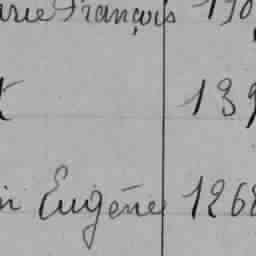 arie François 190
139
in Eugène 1268